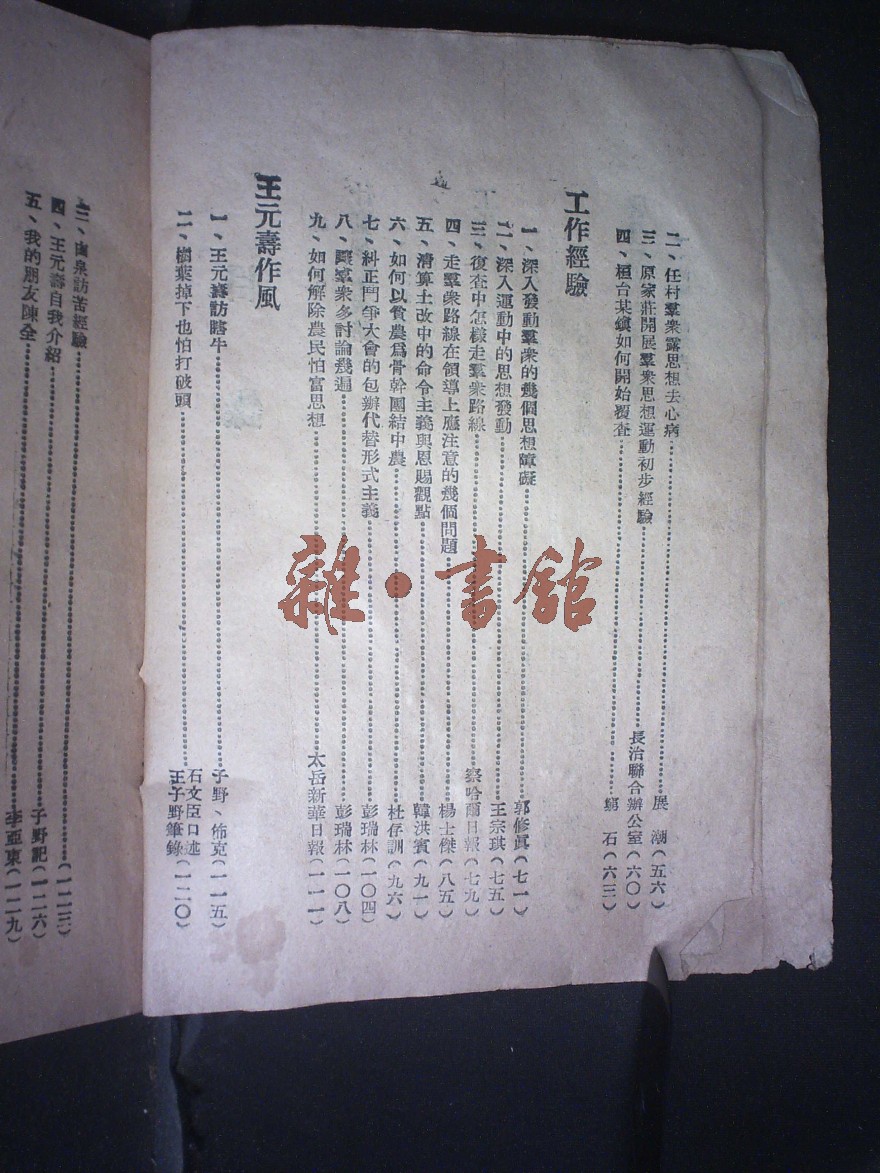 二、任村羣衆露思想去心病……展　潮（五六）
三、原家莊開展羣衆思想運動初步經驗……長治聯合辦公室（六〇）
四、桓台某鎮如何開始覆查……石（六三）
工作經驗
一、深入發動羣衆的幾個思想障礙……郭修眞（七一）
二、深入運動中的思想發動……王宗琪（七五）
三、復查中怎樣走羣衆路線……察哈爾日報（七九）
四、走羣衆路線在領導上應注意的幾個問題……楊士傑（八五）
五、清算土改中的命令主義與恩賜觀點……韓洪賓（九一）
六、如何以貧農爲骨幹團結中農……杜存訓（九六）
七、糾正鬥爭大會的包辦代替形式主義……彭瑞林（一〇四）
八、讓羣衆多討論幾遍……彭瑞林（一〇八）
九、如何解除農民怕富思想……太岳新華日報（一一一）
王元壽作風
一、王元壽訪瞎牛……子野、佈克（一一五）
二、樹葉掉下也怕打破頭……石文臣口述 王子野筆錄（一二〇）
三、泉訪苦經驗……（一二三）
四、王元壽自我介紹……子野記（一二六）
五、我的朋友陳全……李亞東（一二九）
雜·書館